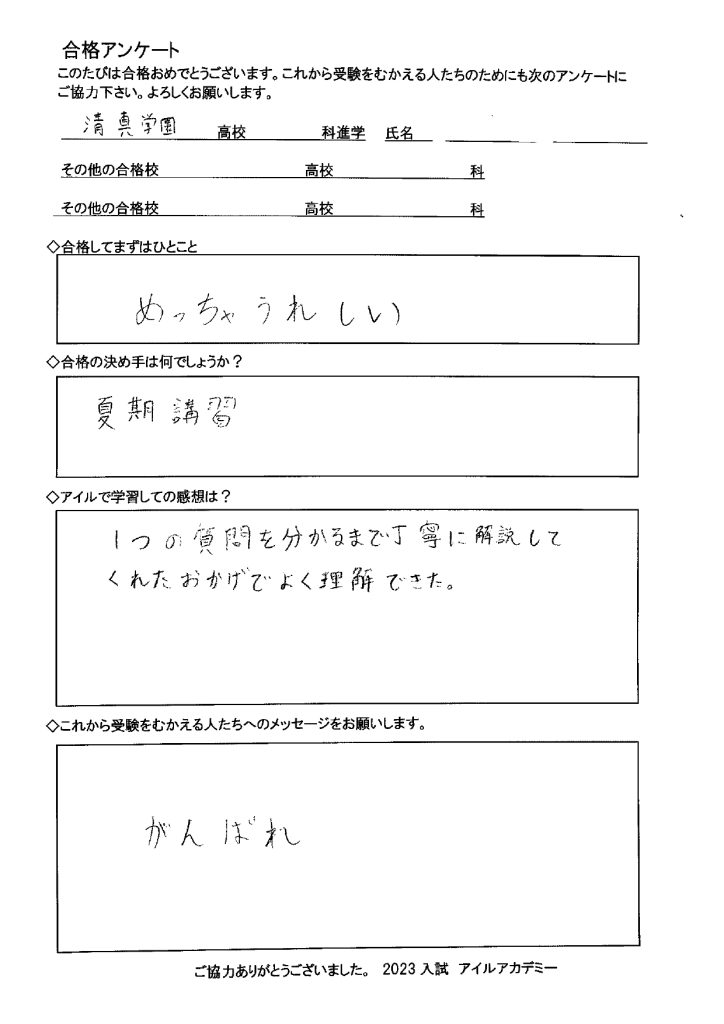 合格アンケート
このたびは合格おめでとうございます。これから受験をむかえる人たちのためにも次のアンケートに
ご協力下さい。よろしくお願いします。
清真学園 高校 科進学 氏名
その他の合格校 高校 科
その他の合格校 高校 科
◇合格してまずはひとこと
めっちゃうれしい
◇合格の決め手は何でしょうか？
夏期講習
◇アイルで学習しての感想は？
1つの質問を分かるまで丁寧に解説して
くれたおかげでよく理解できた。
◇これから受験をむかえる人たちへのメッセージをお願いします。
がんばれ
ご協力ありがとうございました。 2023入試 アイルアカデミー